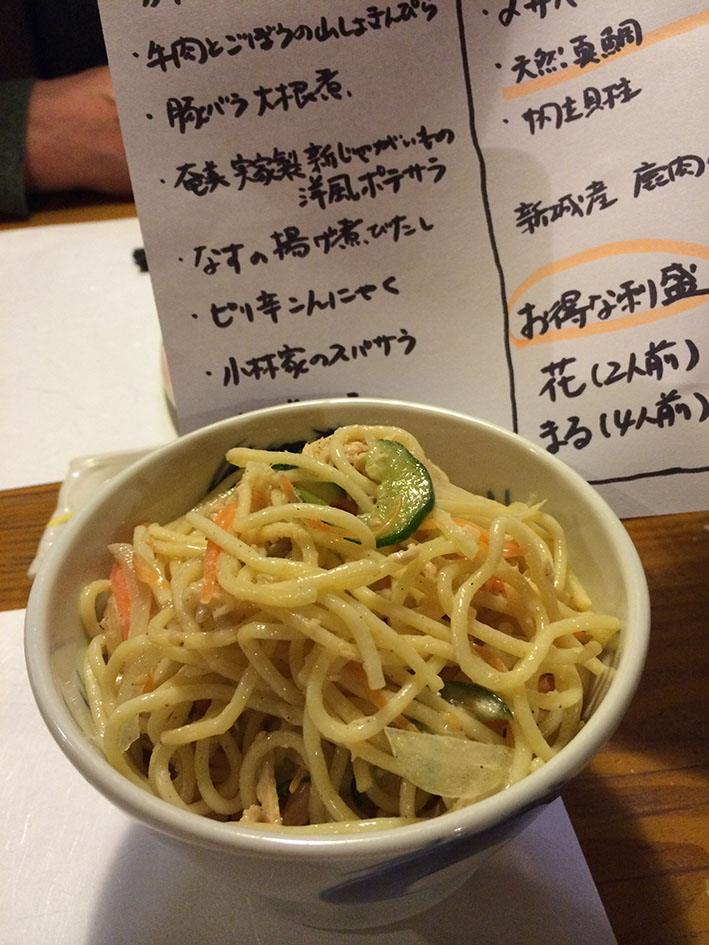 ・牛肉とごぼうの山しょきんぴら
・豚バラ大根煮
・奄美実家製新じゃがいもの
洋風ポテサラ
・なすの揚げ煮びたし
・ピリ辛こんにゃく
・小林家のスパサラ
・〆サバ
・天然真鯛
・内主貝柱
新城産 鹿肉
お得な利盛
花(2人前)
まる(4人前)